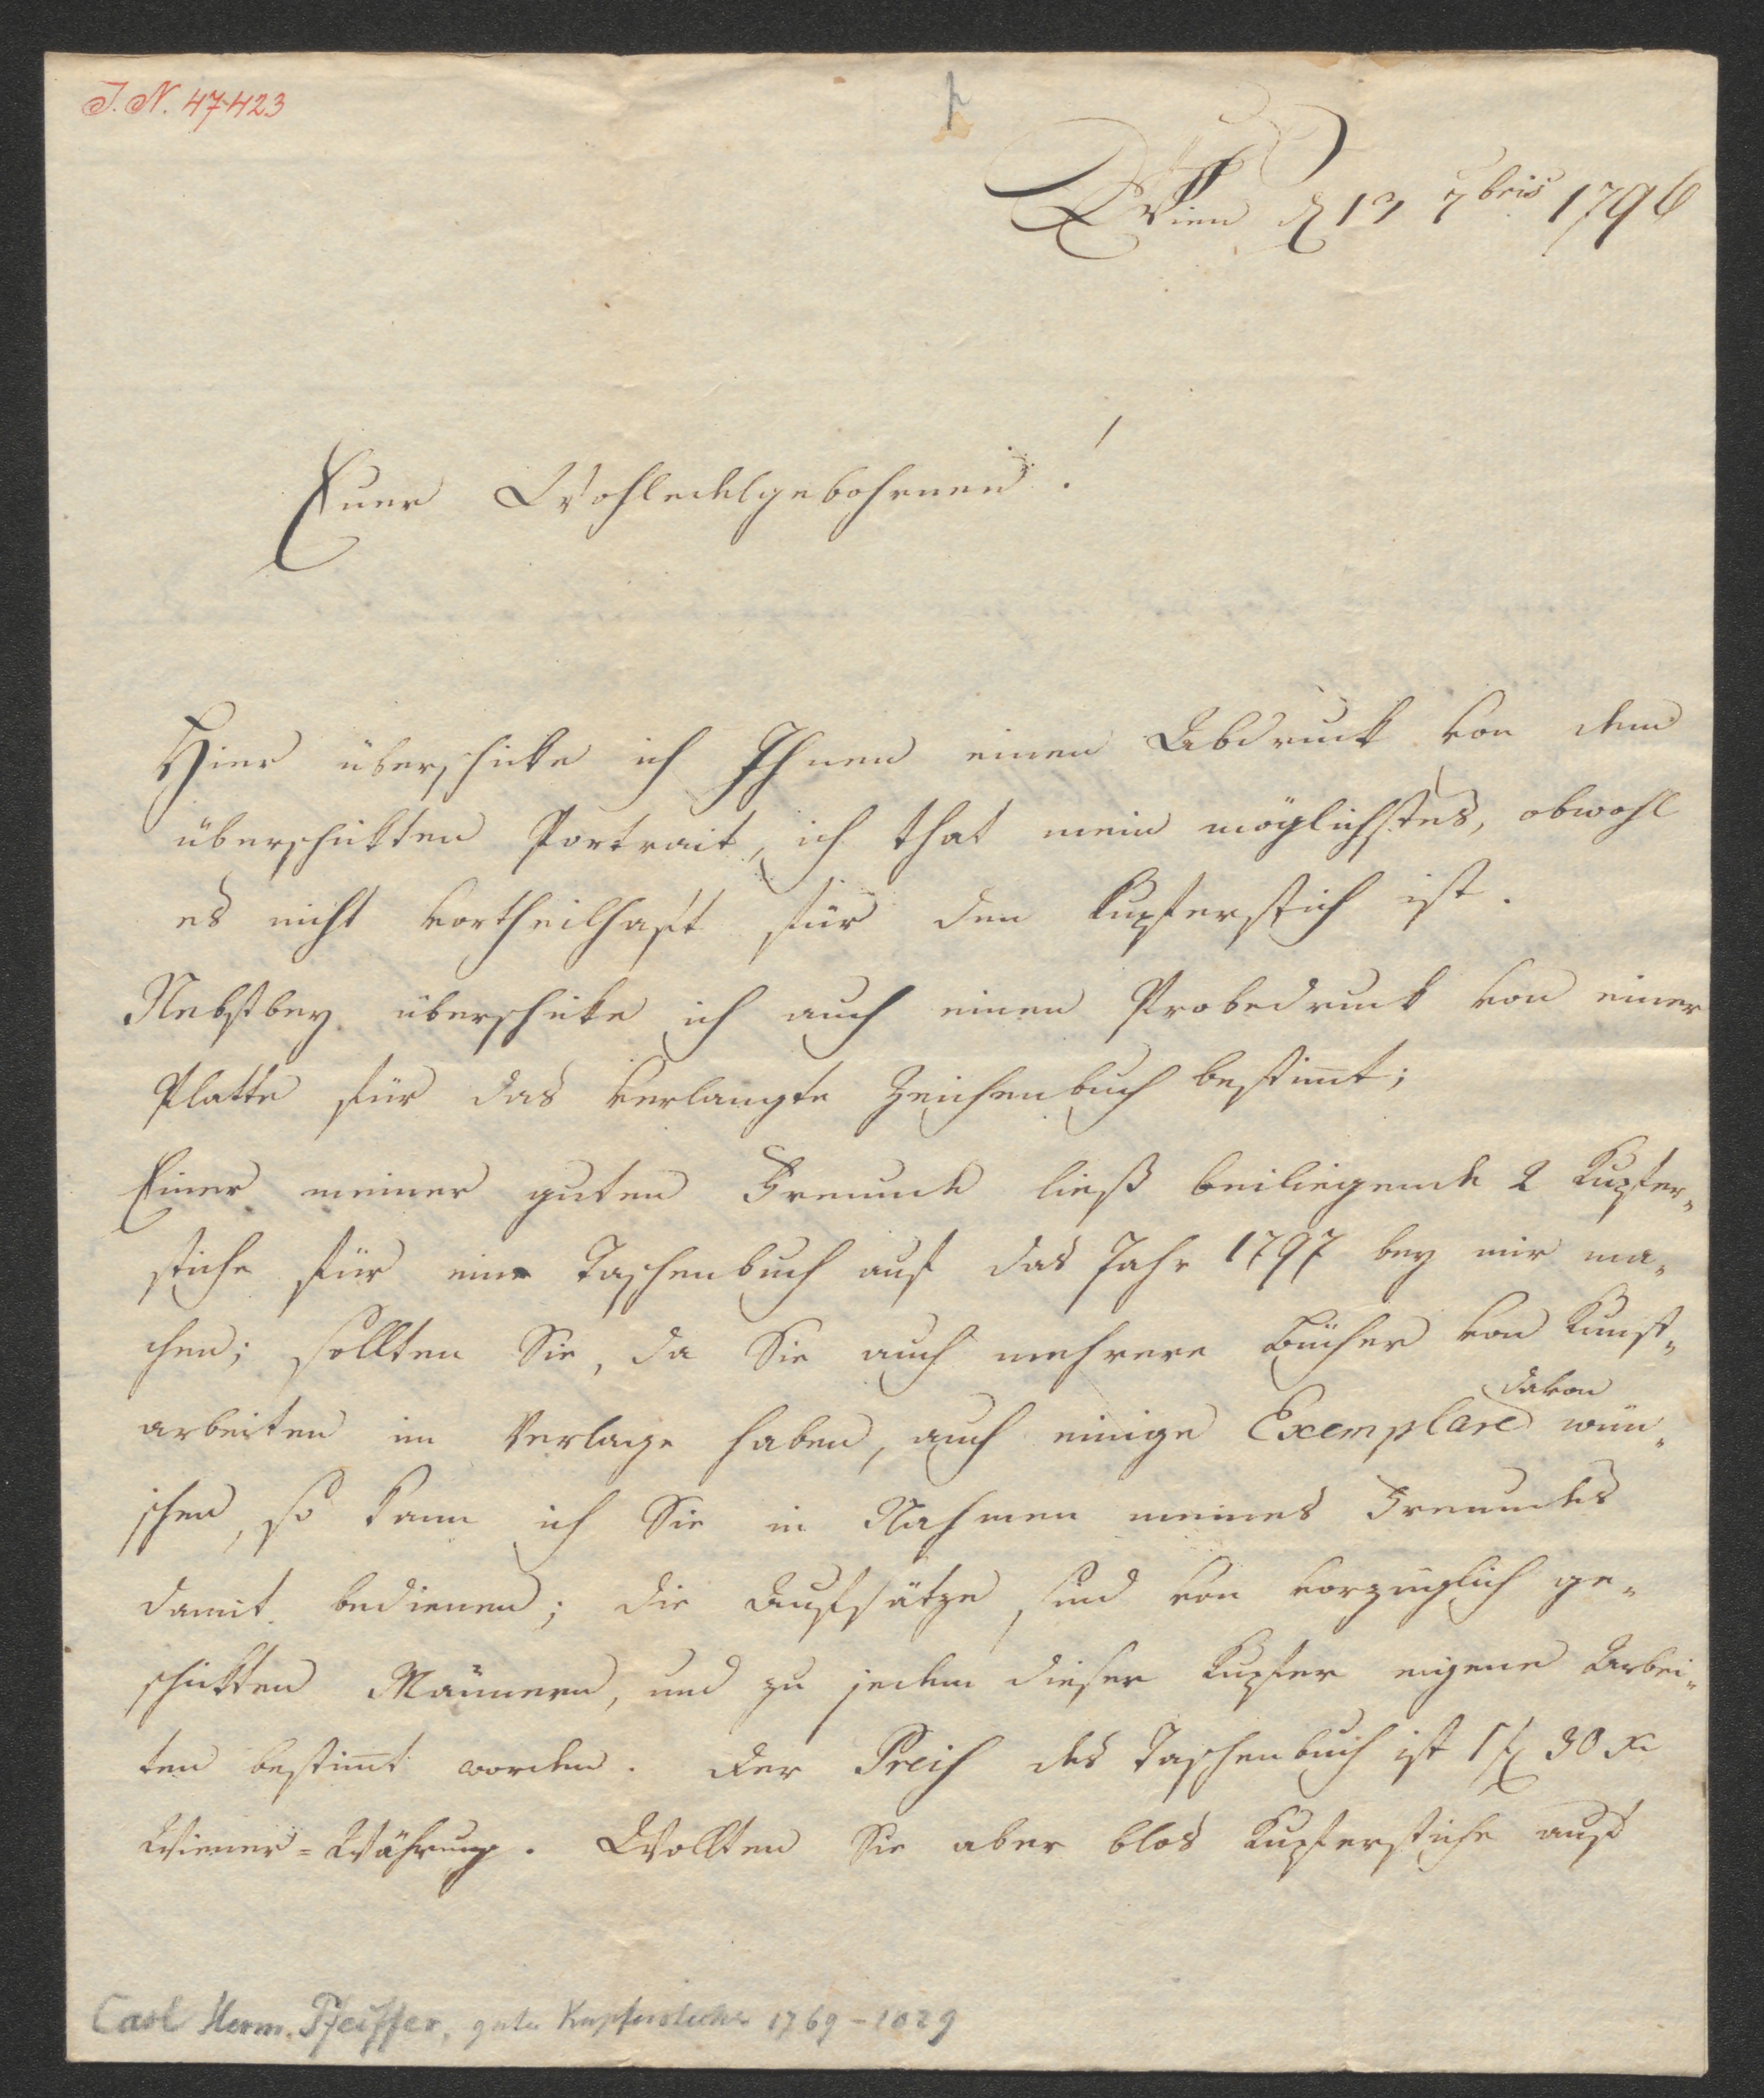 J. N. 47423
Wien d 13 7bris 1796
Euer Wohledelgebohrnen!
Hier überschicke ich Ihnen einen Abdruck von dem
überschickten Portrait, ich that mein möglichstes, obwohl
es nicht vortheilhaft für den Kupferstich ist.
Nebstbey überschicke ich auch einen Probedruck von einer
Platte für das verlangte Zeichenbuch bestim̅t;
Einer meiner guten Freunde ließ beiliegende 2 Kupfer„
stiche für ein Taschenbuch auf das Jahr 1797 bey mir ma„
chen; sollten Sie, da Sie auch mehrere Bücher von Kunst„
davon
arbeiten im Verlage haben, auch einige Exemplare wün„
schen, so kann ich Sie in Nahmen meines Freundes
damit bedienen; die Aufsätze sind von vorzüglich ge„
schickten Männern, und zu jedem dieser Kupfer eigene Arbei„
ten bestim̅t worden. der Preiß des Taschenbuch ist 1 f 30 xr
Wiener=Währung. Wollten Sie aber blos Kupferstiche auf
Carl Herm. Pfeiffer, guter Kupferstecher 1769–1829